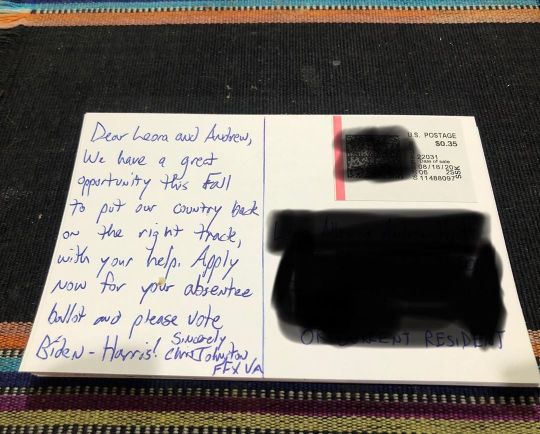 Dear Leora and Andrew,
We have a great
opportunity this Fall
to put our country back
on the right track,
with your help. Apply
now for your absentee
ballot and please vote
Biden - Harris!
Sincerely
Chris Johnston
FFX VA
U.S. POSTAGE
$0.35
22031
Date of sale
08/18/20
06 2S
S 11488097
SSK
OR CURRENT RESIDENT